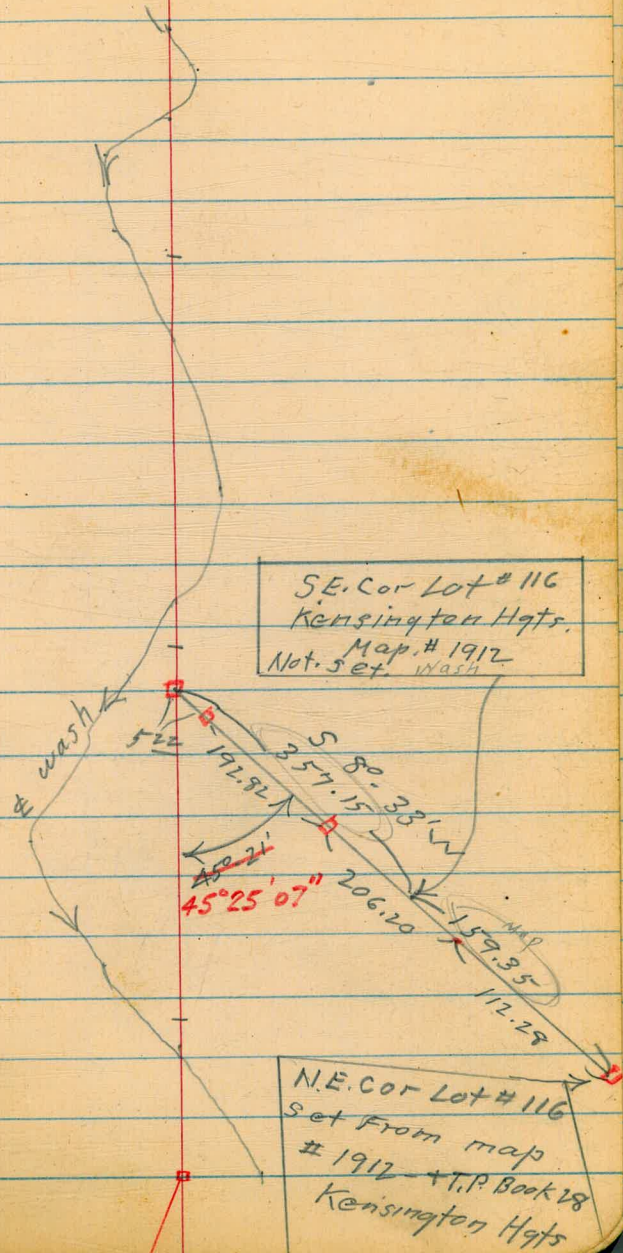 S.E. Cor Lot #116
Kensington Hgts.
Map. # 1912
Not. set. Wash
℄ wash
522
192.82
S 8°-33' W
357.15
45°-21'
45°25'07"
206.20
Map
159.35
112.28
N.E. Cor Lot #116
set From map
# 1912 - + T.P. Book 28
Kensington Hgts